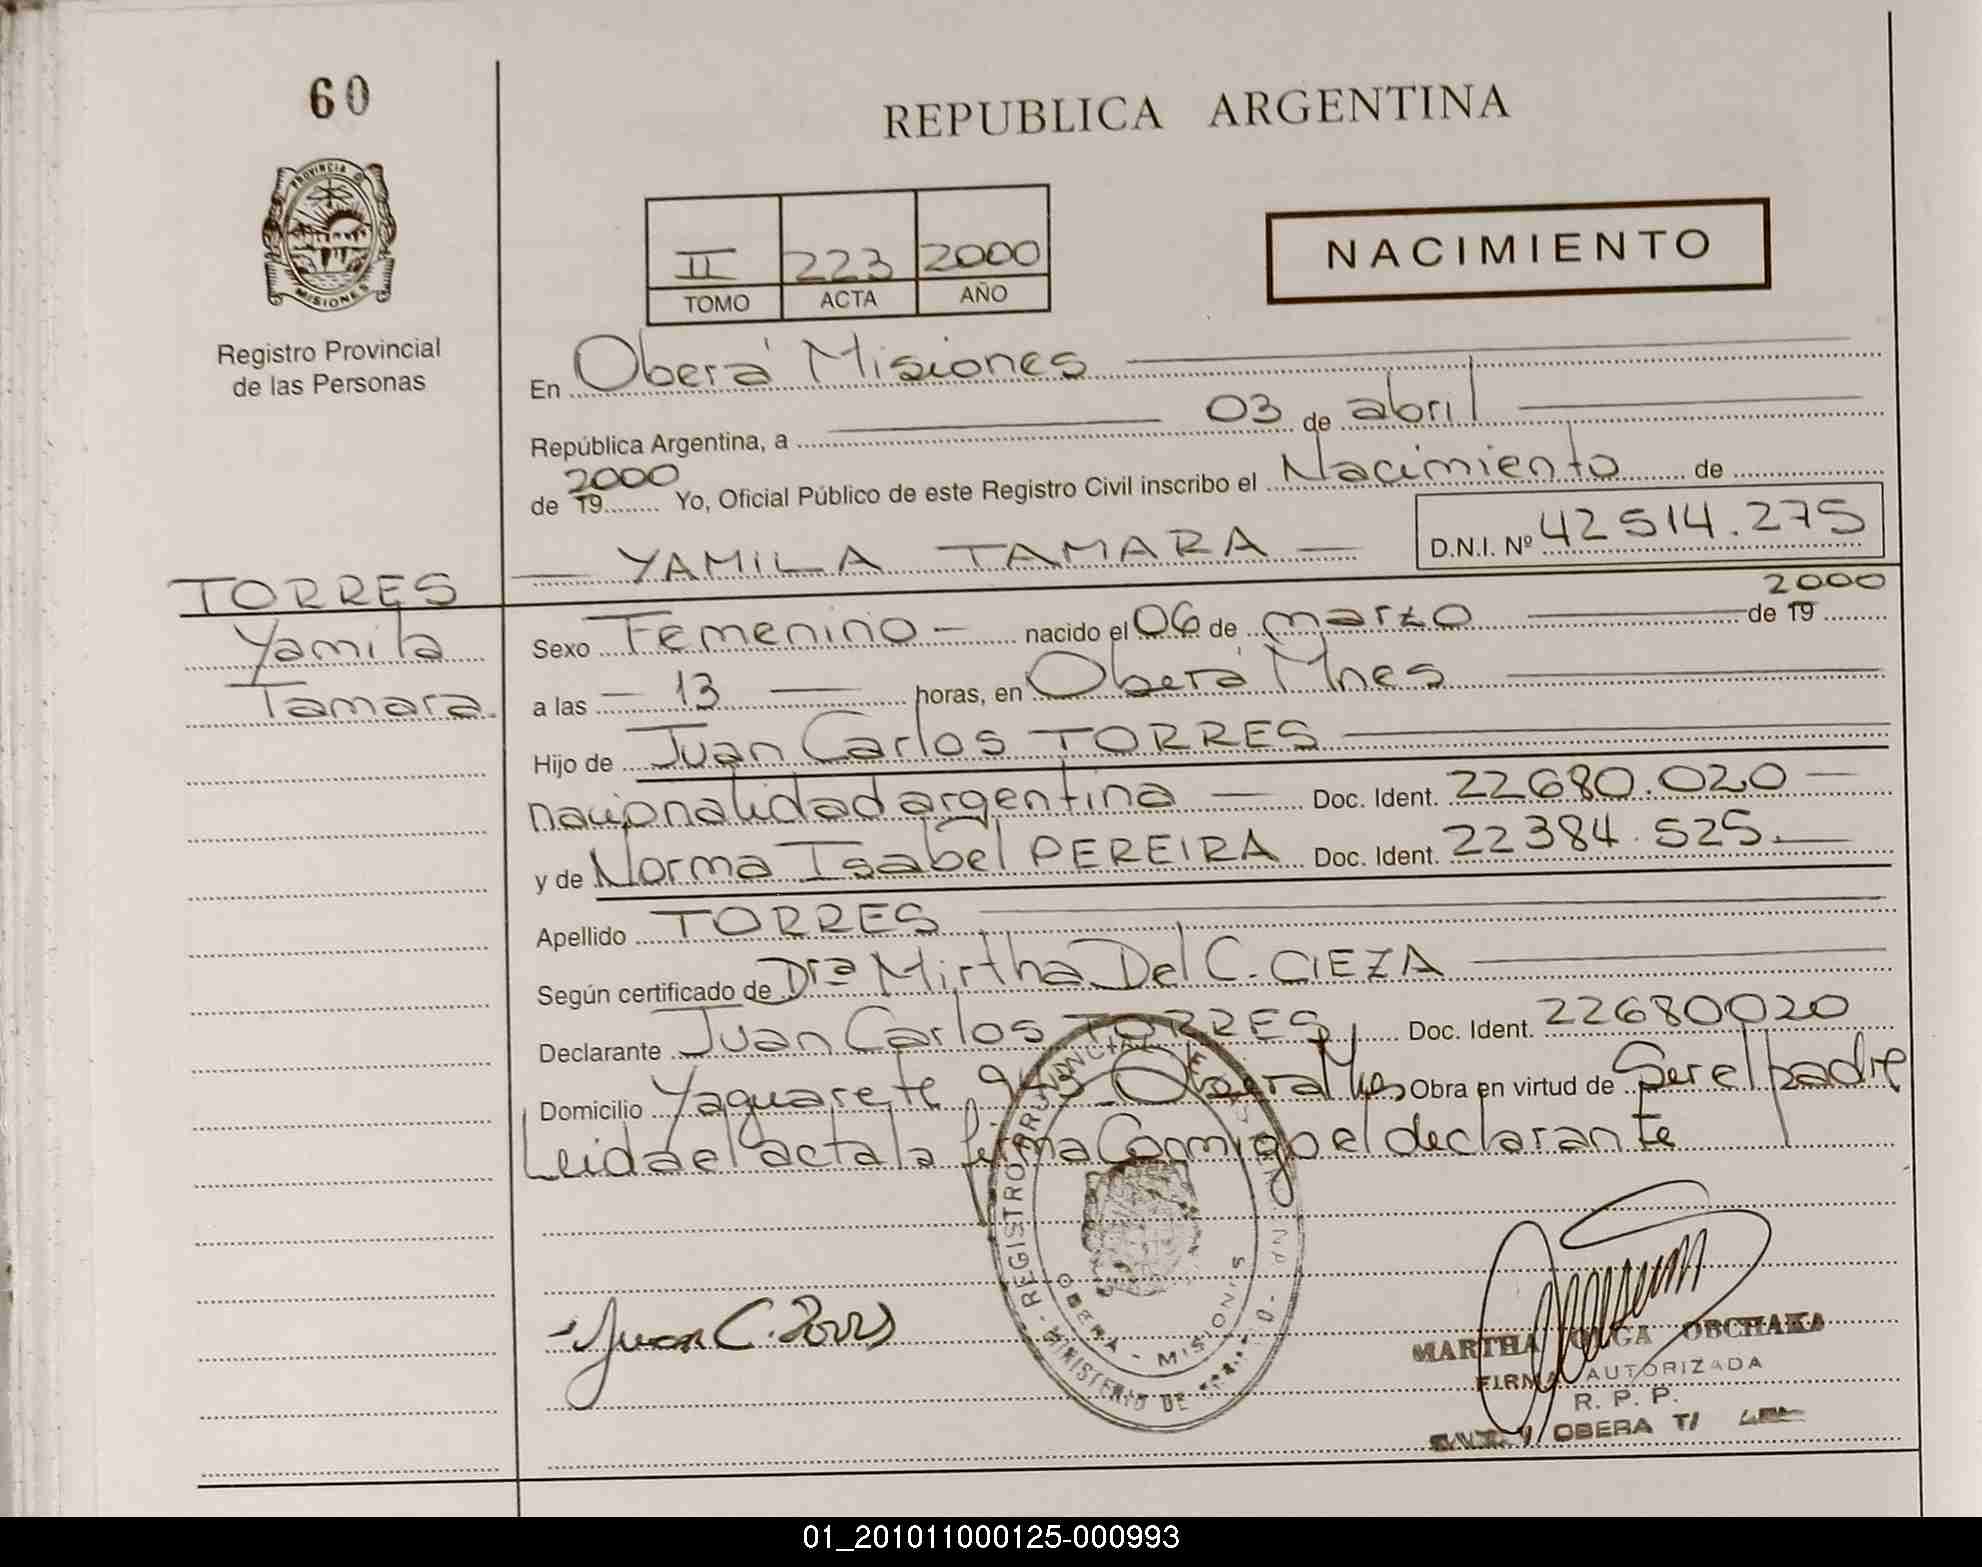 60
PROVINCIA D
MISIONES
Registro Provincial
de las Personas
REPUBLICA ARGENTINA
II 223 2000
TOMO ACTA AÑO
NACIMIENTO
En Oberá Misiones
República Argentina, a 03 de abril
2000
de 19 Yo, Oficial Público de este Registro Civil inscribo el Nacimiento de
YAMILA TAMARA D.N.I. Nº 42514.275
TORRES
Yamila
Tamara
2000
Sexo Femenino nacido el 06 de marzo de 19
a las 13 horas, en Oberá Mnes
Hijo de Juan Carlos TORRES
nacionalidad argentina Doc. Ident. 22680.020
y de Norma Isabel PEREIRA Doc. Ident. 22384.525.
Apellido TORRES
Según certificado de Dra Mirtha Del C. CIEZA
Declarante Juan Carlos TORRES Doc. Ident. 22680020
Domicilio Yaguarete 943 Oberá Mnes Obra en virtud de Ser el padre
Leida el acta la firma Conmigo el declarante
REGISTRO PROVINCIAL
OBERA - MISIONES
MINISTERIO DE
Juan C. Torres
MARTHA OLGA OBCHAKA
FIRMA AUTORIZADA
R. P. P.
OBERA
01_201011000125-000993